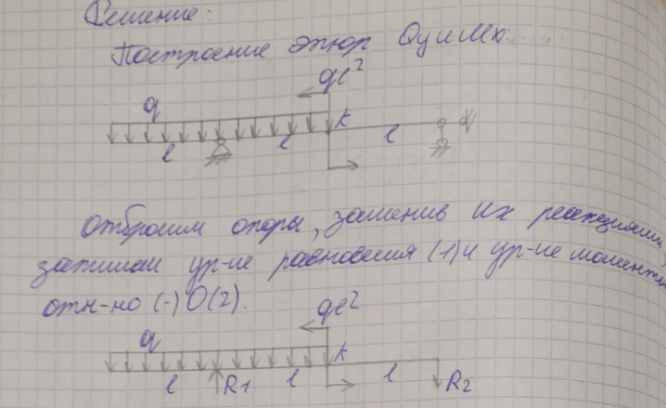 Решение:
Построение эпюр Qy и Mx
ql²
q
K
l
l
l
Отбросим опоры, заменив их реакциями,
запишем ур-ие равновесия (1) и ур-ие момента
отн-но (·) O (2).
ql²
q
K
l
R1
l
l
R2